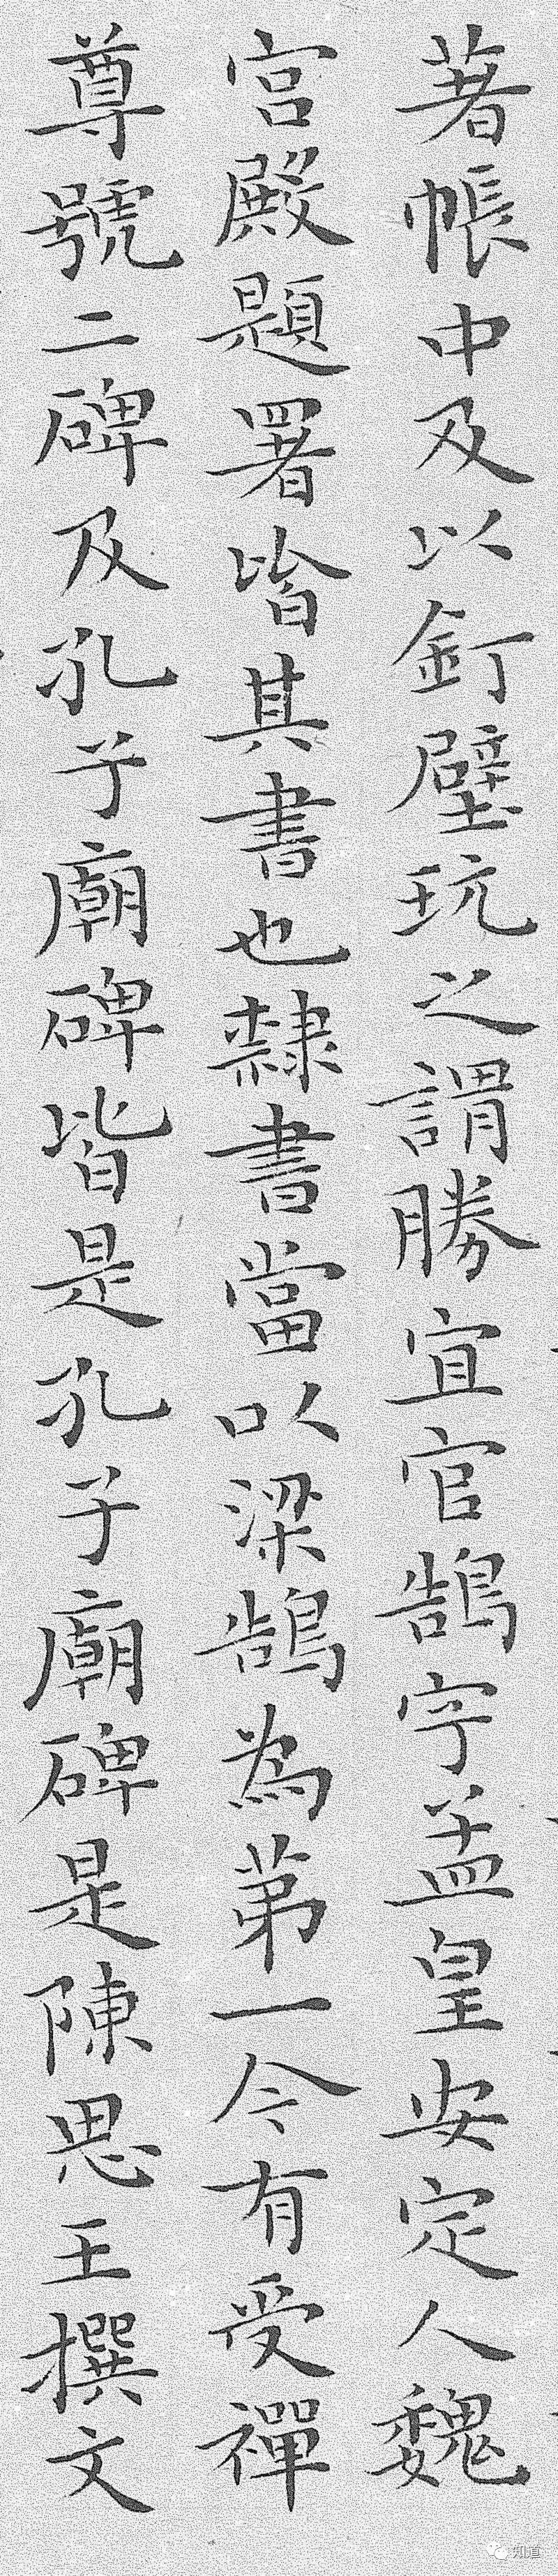 著帳中及以釘壁玩之謂勝宜官鵠字孟皇安定人魏
宮殿題署皆其書也隸書當以梁鵠為第一今有受禪
尊號二碑及孔子廟碑皆是孔子廟碑是陳思王撰文
知道